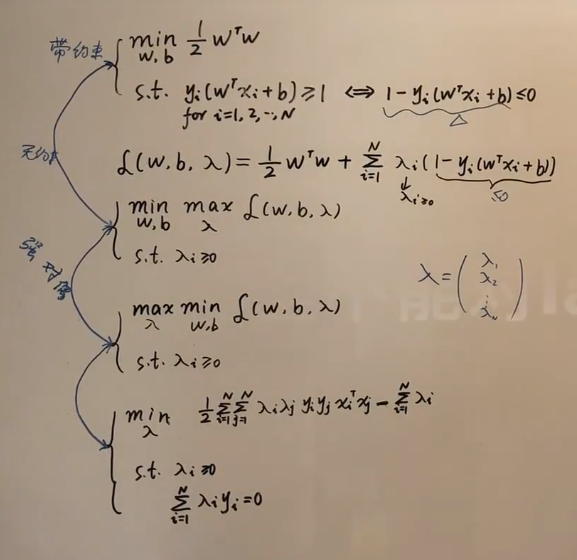 带约束
min 1/2 wᵀw
w,b
s.t. yᵢ(wᵀxᵢ+b)≥1 ⟺ 1-yᵢ(wᵀxᵢ+b)≤0
for i=1,2,…,N
△
无约束
L(w,b,λ)=1/2 wᵀw + ∑ᵢ₌₁ᴺ λᵢ(1-yᵢ(wᵀxᵢ+b))
↓ λᵢ≥0
≤0
min max L(w,b,λ)
w,b λ
s.t. λᵢ≥0
强对偶
λ=(λ₁ λ₂ ⋮ λ_N)
max min L(w,b,λ)
λ w,b
s.t. λᵢ≥0
min 1/2 ∑ᵢ₌₁ᴺ ∑ⱼ₌₁ᴺ λᵢλⱼ yᵢyⱼ xᵢᵀxⱼ - ∑ᵢ₌₁ᴺ λᵢ
λ
s.t. λᵢ≥0
∑ᵢ₌₁ᴺ λᵢyᵢ=0